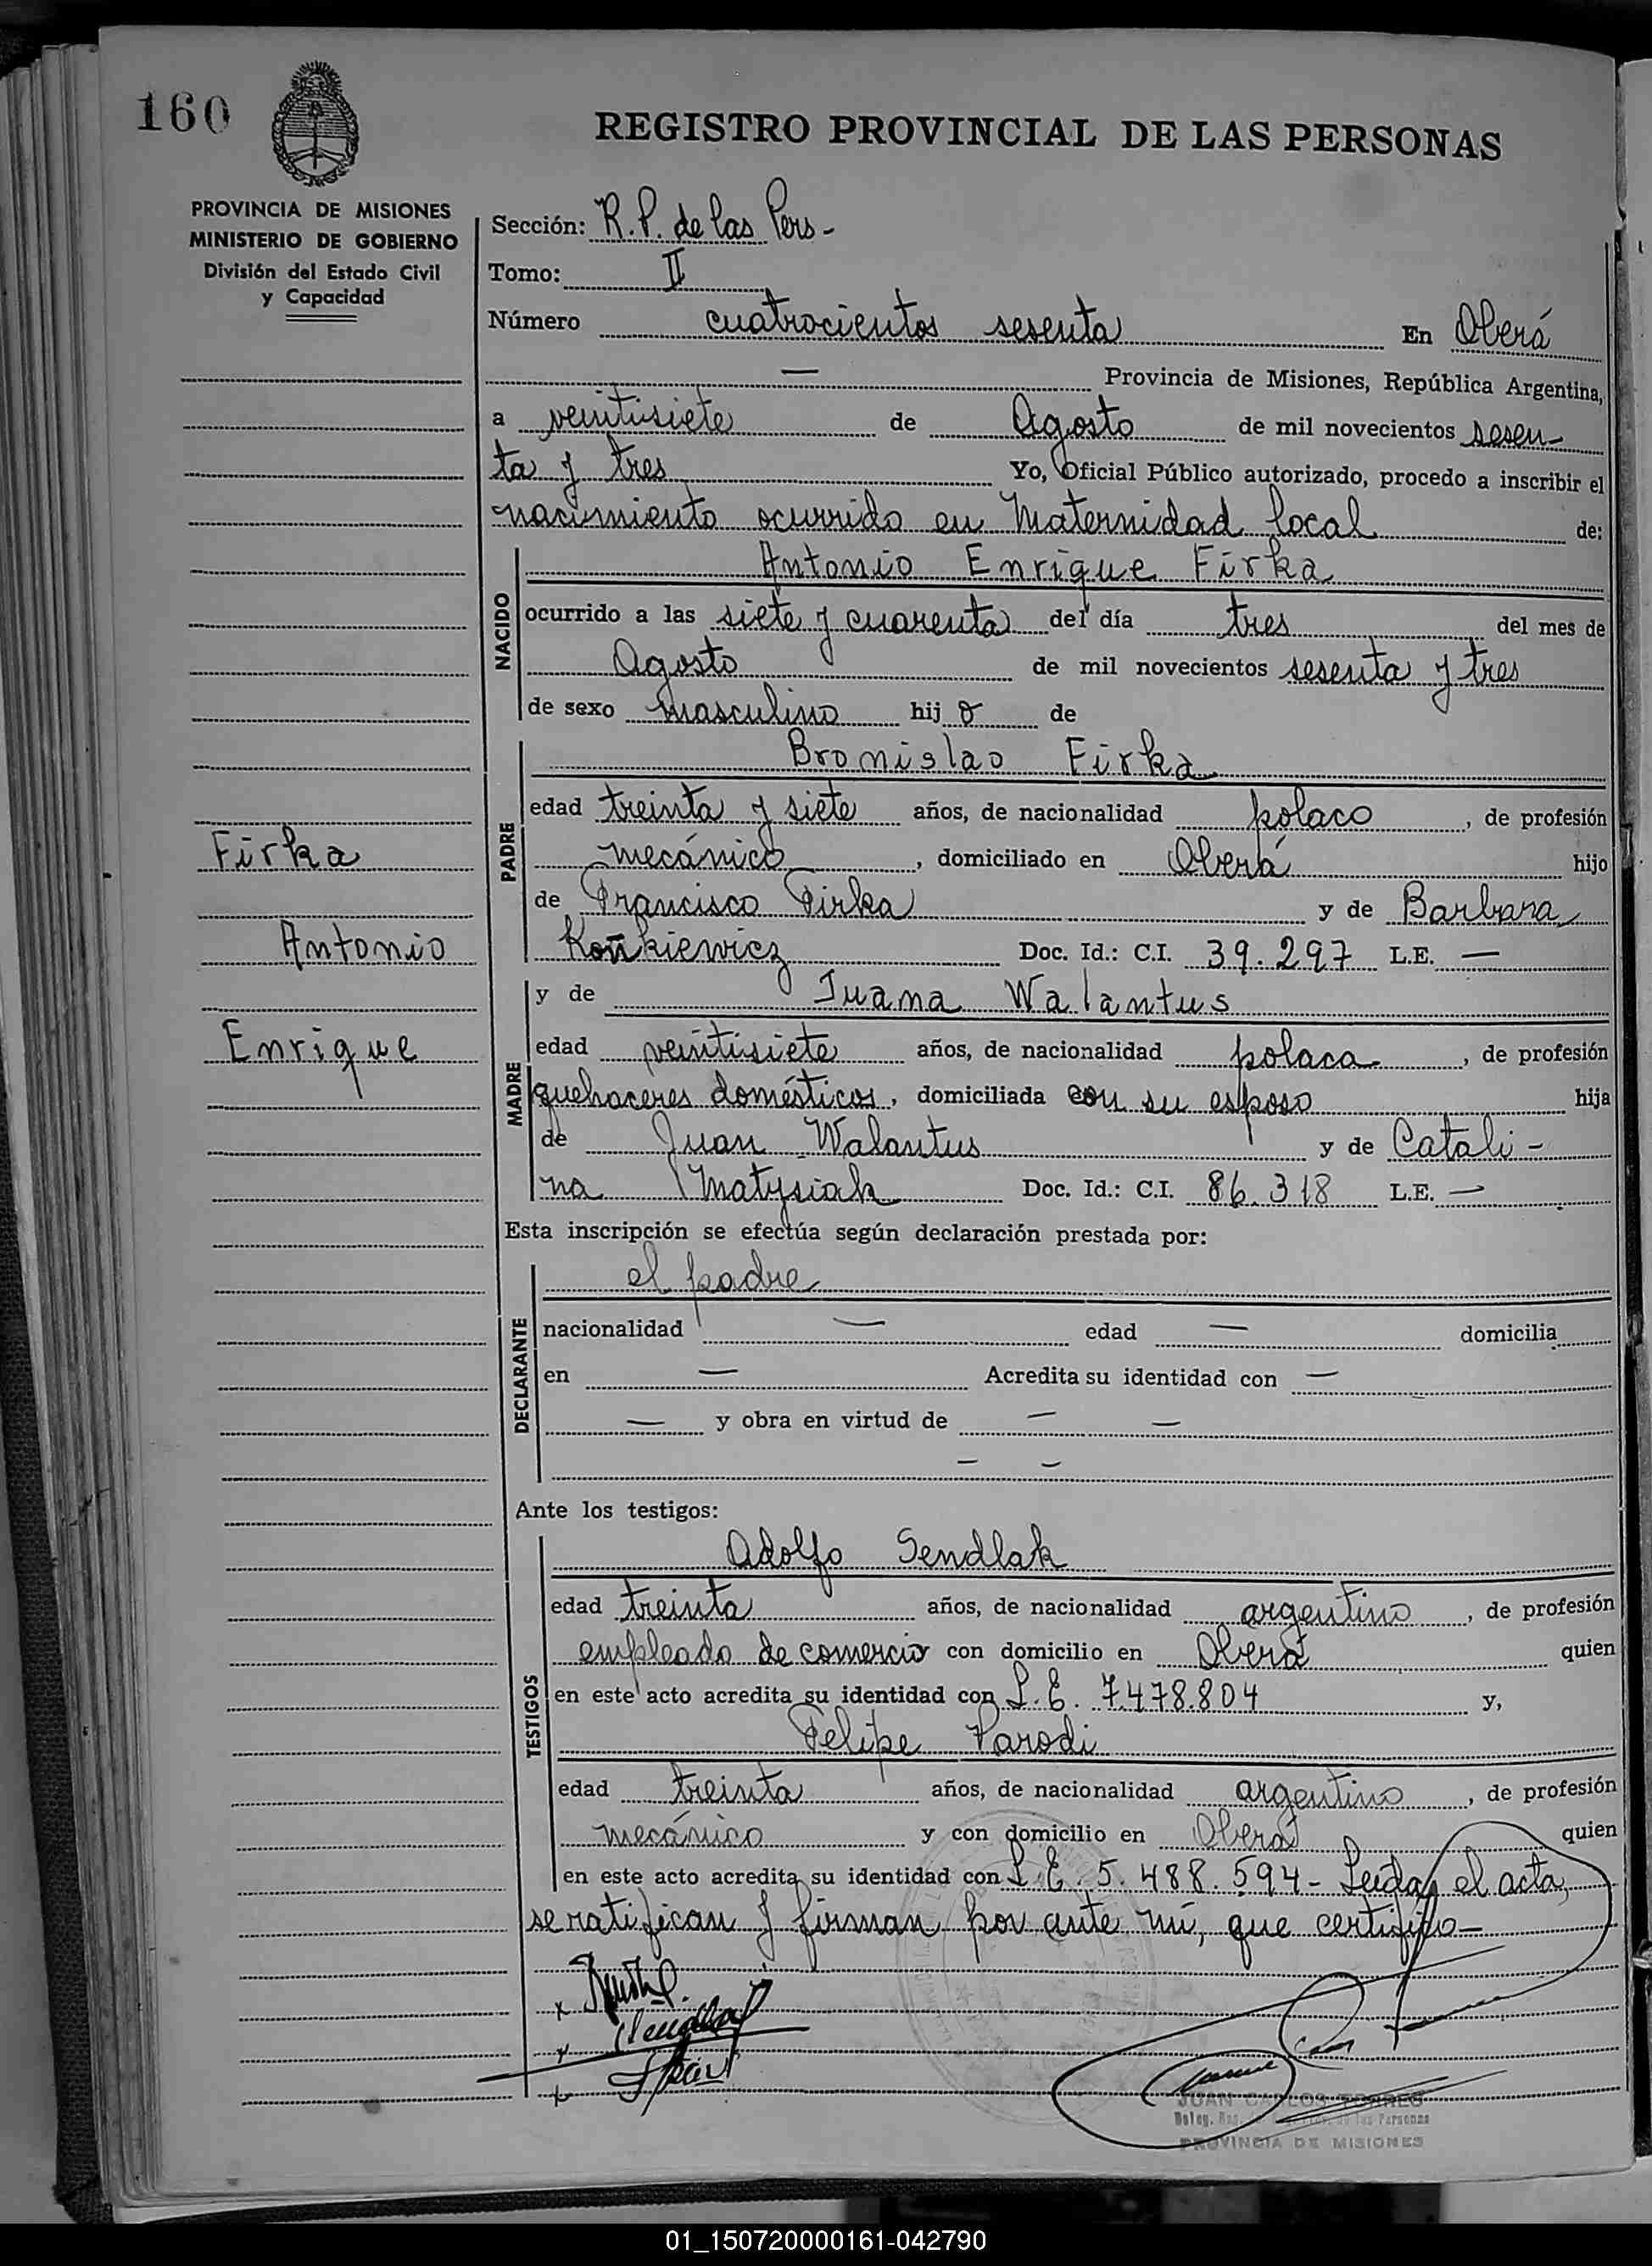 160
REGISTRO PROVINCIAL DE LAS PERSONAS
PROVINCIA DE MISIONES
MINISTERIO DE GOBIERNO
División del Estado Civil
y Capacidad
Sección: R.P. de las Pers-
Tomo: II
Número cuatrocientos sesenta En Oberá
— Provincia de Misiones, República Argentina,
a veintisiete de Agosto de mil novecientos sesen-
ta y tres Yo, Oficial Público autorizado, procedo a inscribir el
nacimiento ocurrido en Maternidad local de:
NACIDO
Antonio Enrique Firka
ocurrido a las siete y cuarenta del día tres del mes de
Agosto de mil novecientos sesenta y tres
de sexo masculino hijo de
PADRE
Bronislao Firka
edad treinta y siete años, de nacionalidad polaco, de profesión
mecánico, domiciliado en Oberá hijo
de Francisco Firka y de Barbara
Koñkiewicz Doc. Id.: C.I. 39.297 L.E. —
Firka
Antonio
Enrique
MADRE
y de Juana Walantus
edad veintisiete años, de nacionalidad polaca, de profesión
quehaceres domésticos, domiciliada con su esposo hija
de Juan Walantus y de Catali-
na Matysiak Doc. Id.: C.I. 86.318 L.E. —
Esta inscripción se efectúa según declaración prestada por:
DECLARANTE
el padre
nacionalidad — edad — domicilia
en — Acredita su identidad con —
— y obra en virtud de — —
— —
Ante los testigos:
TESTIGOS
Adolfo Sendlak
edad treinta años, de nacionalidad argentino, de profesión
empleado de comercio con domicilio en Oberá quien
en este acto acredita su identidad con L.E. 7.478.804 y,
Felipe Parodi
edad treinta años, de nacionalidad argentino, de profesión
mecánico y con domicilio en Oberá quien
en este acto acredita su identidad con L.E. 5.488.594- Leída el acta,
se ratifican y firman por ante mí, que certifico-
JUAN CARLOS TORRES
PROVINCIA DE MISIONES
01_150720000161-042790